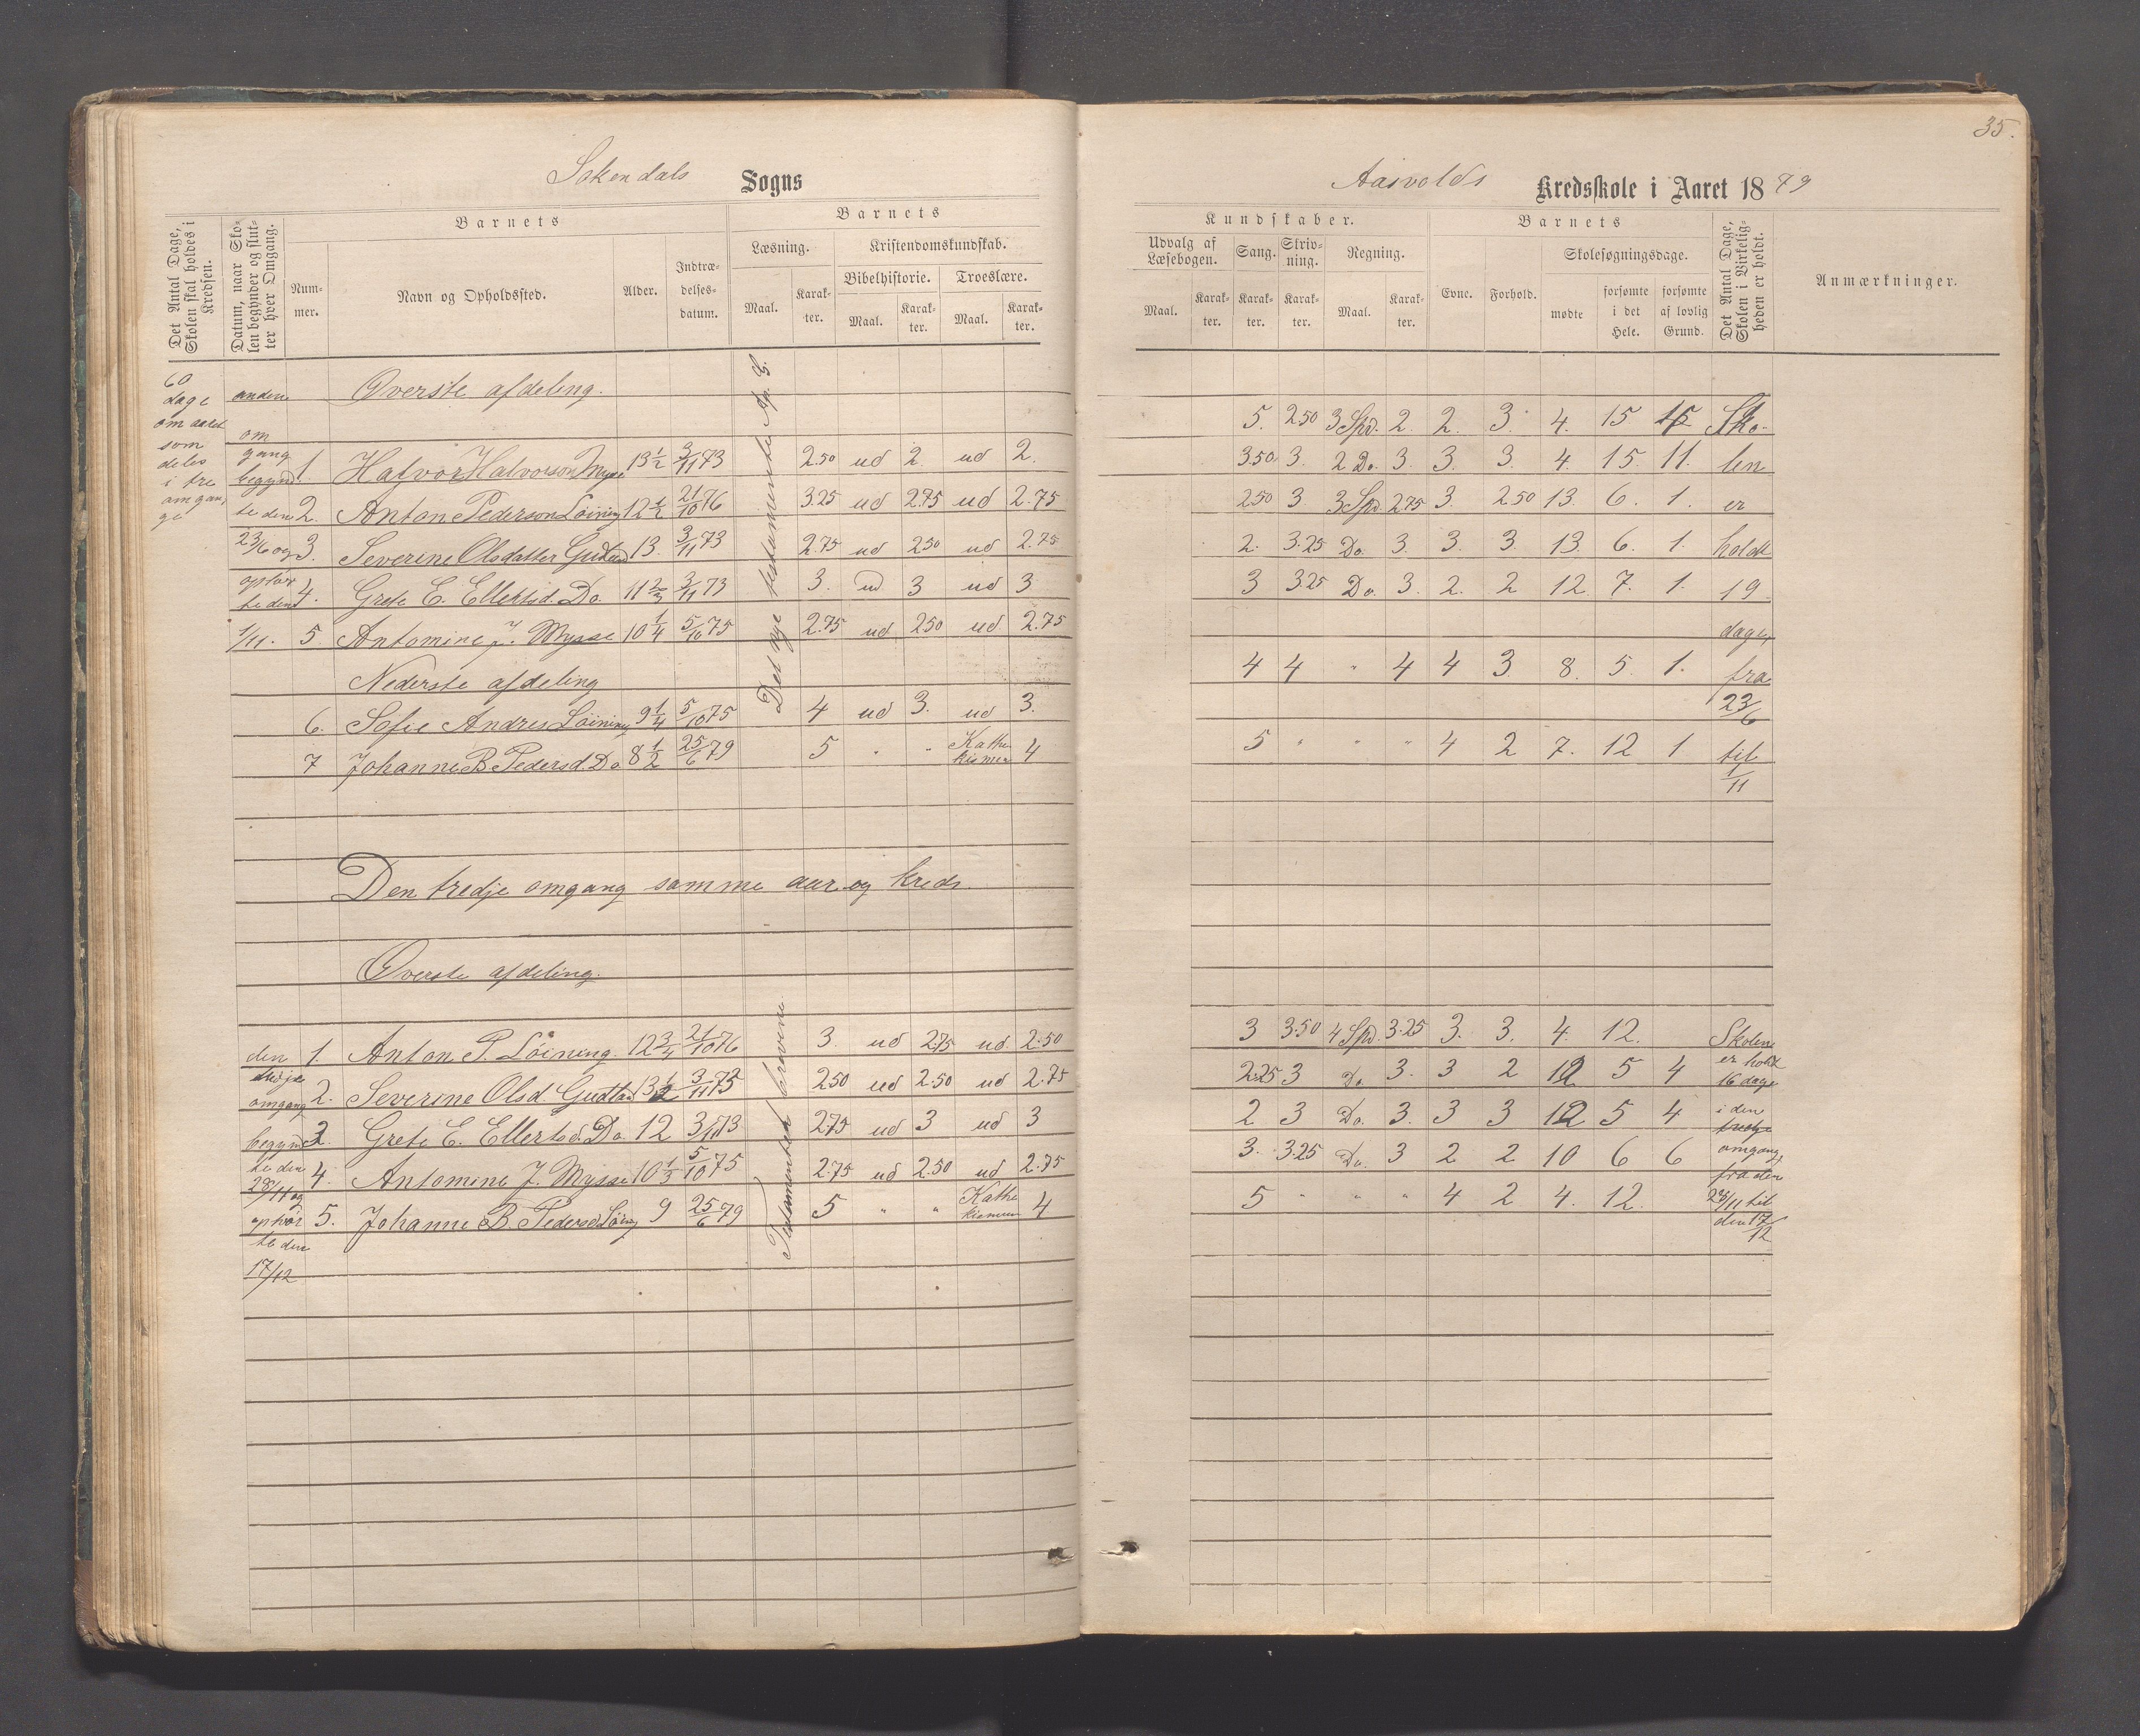 35.
Sokendals Sogns
Aasvolds Kredsskole i Aaret 1879
Det Antal Dage, Skolen skal holdes i Kredsen.
Datum, naar Skolen begynder og slutter hver Omgang.
Barnets
Nummer.
Navn og Opholdssted.
Alder.
Indtrædelsesdatum.
Barnets
Læsning.
Kristendomskundskab.
Bibelhistorie.
Troeslære.
Maal.
Karakter.
Maal.
Karakter.
Maal.
Karakter.
Kundskaber.
Udvalg af Læsebogen.
Sang.
Skrivning.
Regning.
Maal.
Karakter.
Karakter.
Karakter.
Maal.
Karakter.
Barnets
Evne.
Forhold.
Skolesøgningsdage.
mødte
forsømte i det Hele.
forsømte af lovlig Grund.
Det Antal Dage, Skolen i Virkeligheden er holdt.
Anmærkninger.
60 dage om aaret som deles i tre omgange
anden omgang begyndte den 23/6 og ophørte den 1/11.
Det nye testamente Ap. G.
Øverste afdeling.
1. Halvor Halvorson Mysse 13 1/2 3/11 73 2.50 ud 2. ud 2. 5. 250 3 Spd. 2. 2. 3. 4. 15 15
2. Anton Pederson Løining 12 1/2 21/10 76 3.25 ud 2.75 ud 2.75 3.50 3. 2 Do. 3. 3. 3. 4. 15. 11.
3. Severine Olsdatter Gudland 13. 3/11 73 2.75 ud 250 ud 2.75 250 3 3 Spd. 275 3. 250 13. 6. 1.
4. Grete E. Ellertsd. Do. 11 2/3 3/11 73 3. ud 3 ud 3 2. 3.25 Do. 3. 3. 3. 13. 6. 1.
5. Antomine J. Mysse 10 1/4 5/10 75 2.75 ud 250 ud 2.75 3 325 Do. 3. 2. 2 12 7. 1.
Nederste afdeling
6. Sofie Andres Løining 9 1/4 5/10 75 4 ud 3. ud 3. 4 4 " 4 4 3. 8. 5. 1.
7 Johanne B. Pedersd. Do 8 1/2 25/6 79 5 " " Kathekismen 4 5 " " " 4 2 7. 12 1
Skolen er holdt 19 dage, fra 23/6 til 1/11
Den tredje omgang samme aar og kreds.
Øverste afdeling.
den tredje omgang begyndte den 28/11 og ophørte den 17/12
1. Anton P. Løining. 12 3/4 21/10 76 3. ud 2.75 ud 2.50 3 3.50 4 Spd. 3.25 3. 3. 4. 12.
2. Severine Olsd Gudland 13 1/2 3/11 73 250 ud 2.50 ud 2.75 2.25 3 Do 3. 3 2 12 5 4
3. Grete E. Ellertsd. Do. 12 3/11 73 275 ud 3 ud 3 2 3 Do. 3. 3 3 12 5 4
4. Antomine J. Mysse 10 1/3 5/10 75 2.75 ud 2.50 ud 2.75 3. 3.25 Do. 3 2 2 10 6 6
5. Johanne B. Pedersd Løining 9 25/6 79 5 " " Kathekismen 4 5 " " " 4 2 4. 12.
Skolen er holdt 16 dage i den tredje omgang, fra den 28/11 til den 17/12